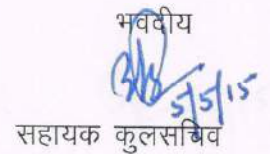 भवदीय
5/5/15
सहायक कुलसचिव